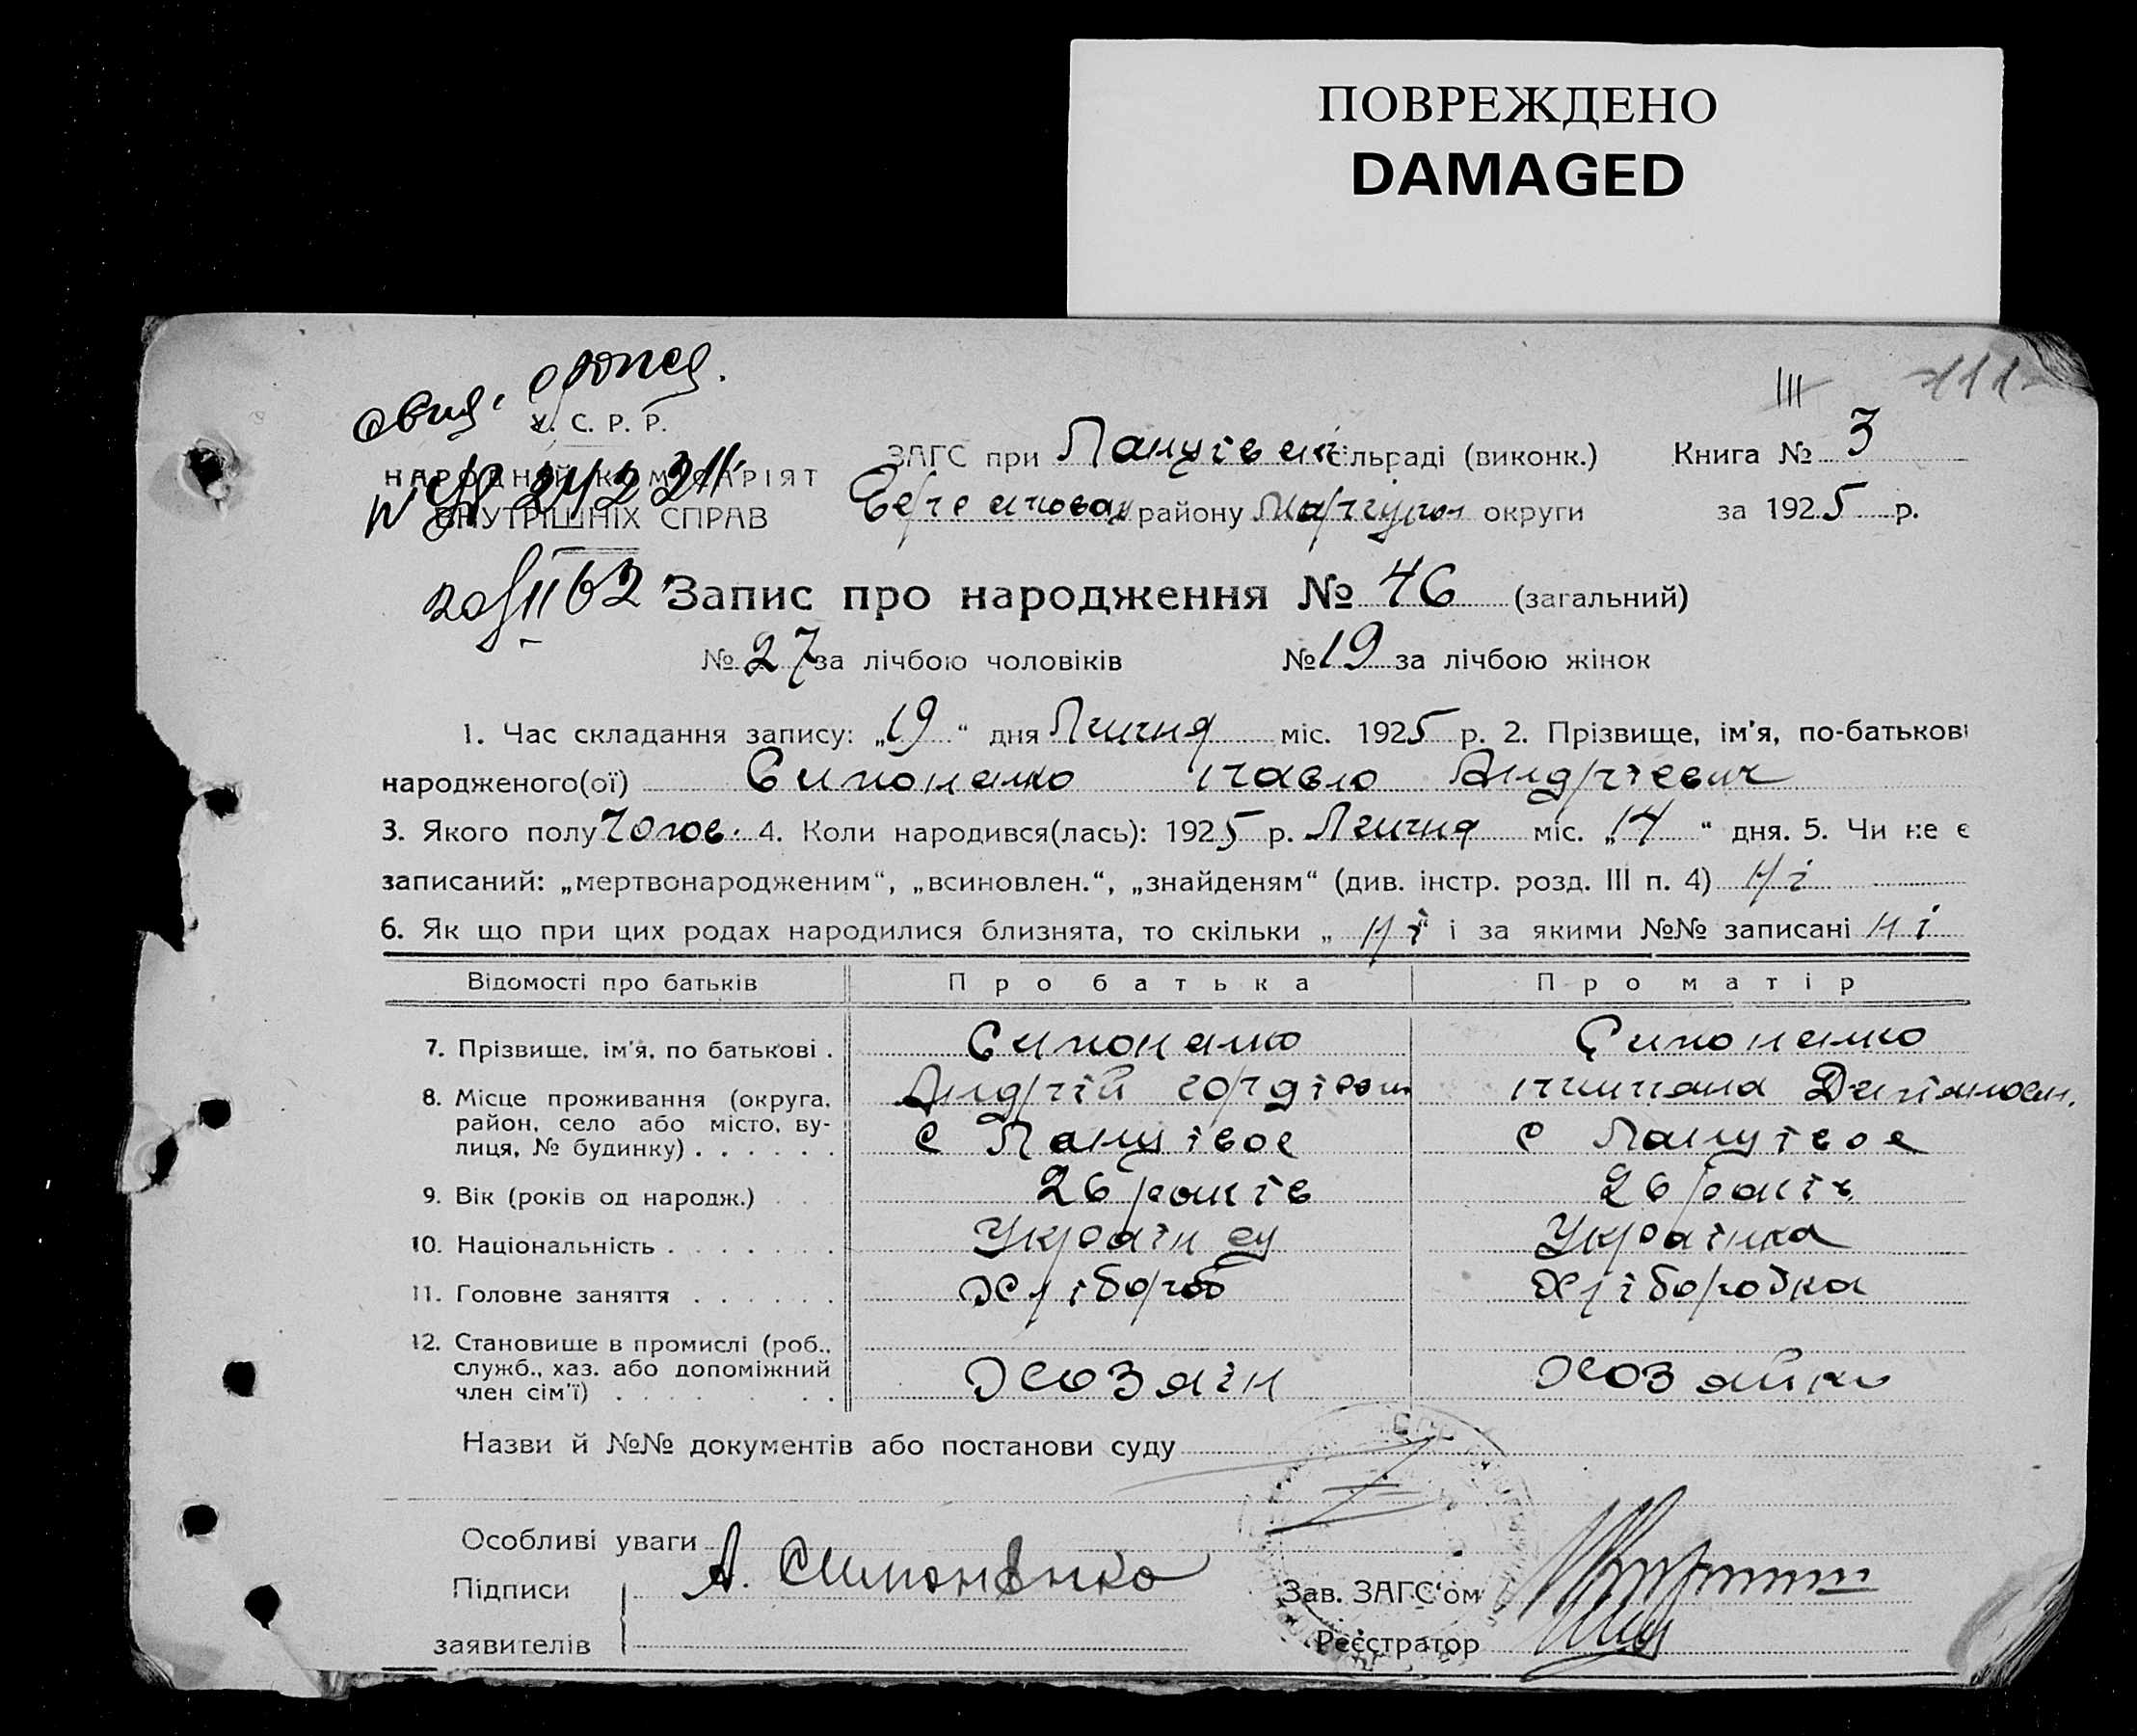 ПОВРЕЖДЕНО
DAMAGED
III 111
У. С. Р. Р.
НАРОДНИЙ КОМІСАРІЯТ
ВНУТРІШНІХ СПРАВ
ЗАГС при сільраді (виконк.) Книга № 3
району округи за 1925 р.
Запис про народження № 46 (загальний)
№ 27 за лічбою чоловіків № 19 за лічбою жінок
1. Час складання запису: „19“ дня міс. 1925 р. 2. Прізвище, ім'я, по-батькові
народженого(ої) Симоненко Павло Андрієвич
3. Якого полу Чолов. 4. Коли народився(лась): 1925 р. міс. „14“ дня. 5. Чи не є
записаний: „мертвонародженим“, „всиновлен.“, „знайденям“ (див. інстр. розд. III п. 4) Ні
6. Як що при цих родах народилися близнята, то скільки „ Ні “ і за якими №№ записані Ні
Відомості про батьків Про батька Про матір
7. Прізвище, ім'я, по батькові . Симоненко Симоненко
Андрій Гордієвич
8. Місце проживання (округа,
район, село або місто, ву-
лиця, № будинку) . . . . . . с с
9. Вік (років од народж.) 26 років 26 років
10. Національність . . . . . . . Українець Українка
11. Головне заняття . . . . . . Хлібороб Хлоборобка
12. Становище в промислі (роб.,
служб., хаз. або допоміжний
член сім'ї) . . . . . . . Хозяін Хозяйка
Назви й №№ документів або постанови суду
Особливі уваги
Підписи А. Симоненко Зав. ЗАГС'ом
заявителів Реєстратор